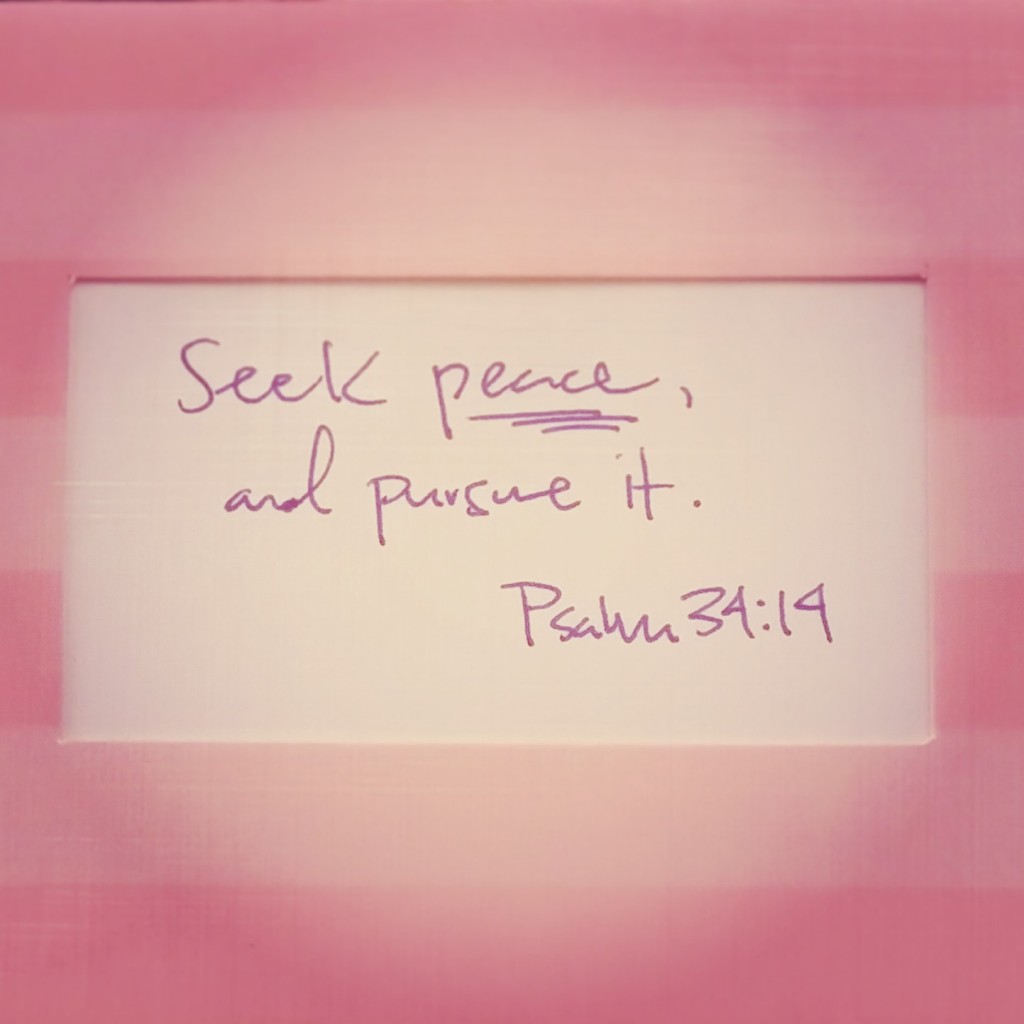 Seek peace,
and pursue it.
Psalm 34:14